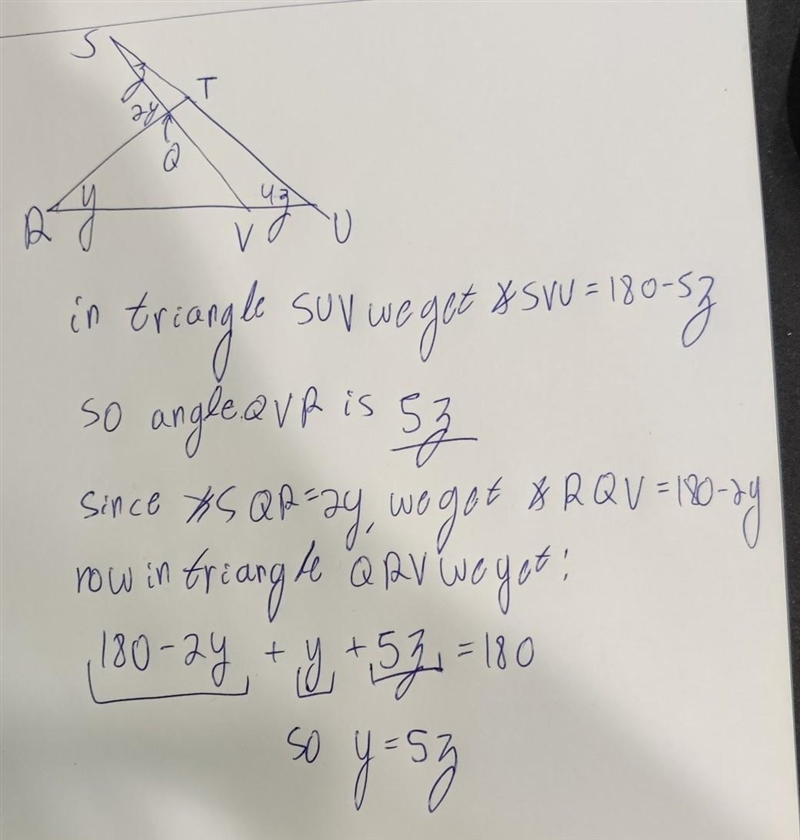 S
z
T
2y
Q
y
4z
R
V
U
in triangle SUV we get ∡SVU = 180 - 5z
so angle QVR is 5z
since ∡SQR = 2y, we get ∡RQV = 180 - 2y
now in triangle QRV we get:
180 - 2y + y + 5z = 180
so y = 5z